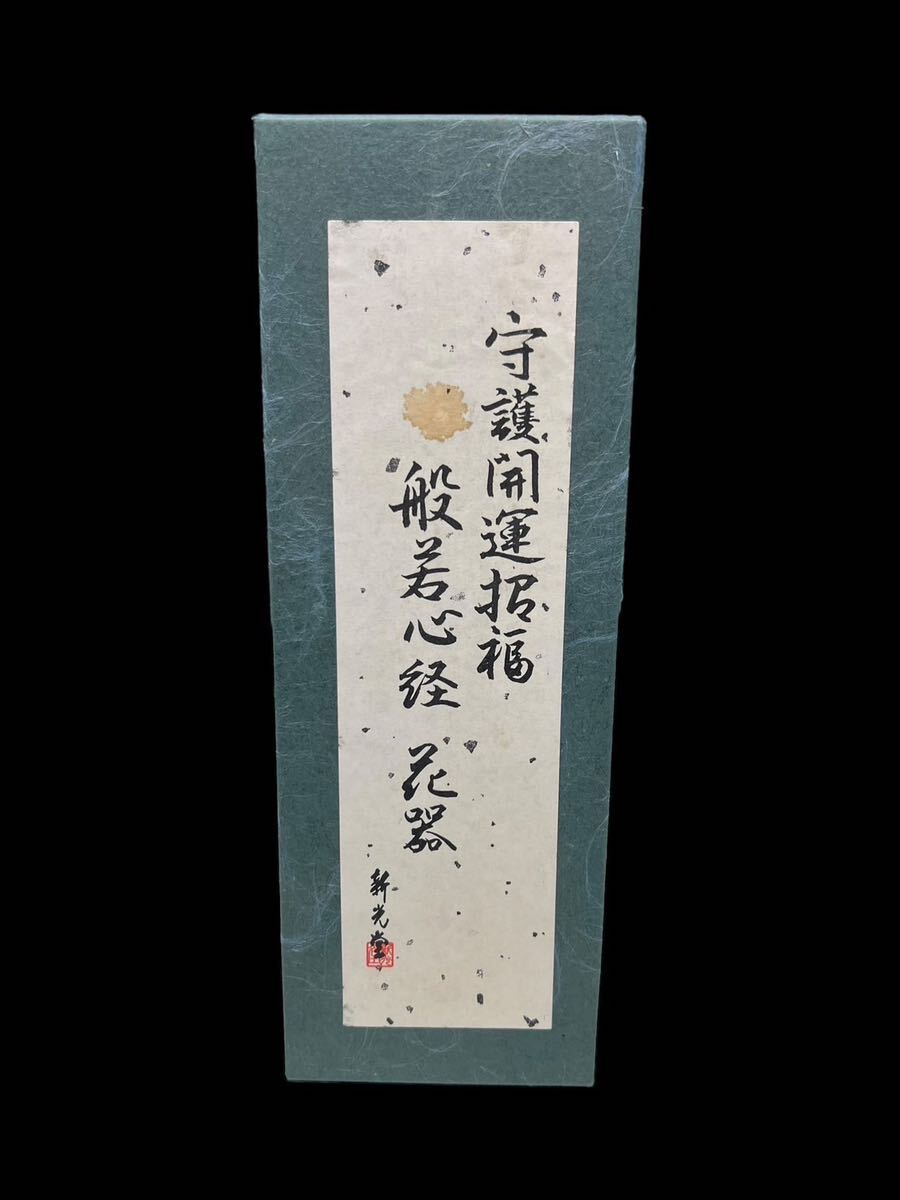 守護開運招福
般若心経 花器
新光堂